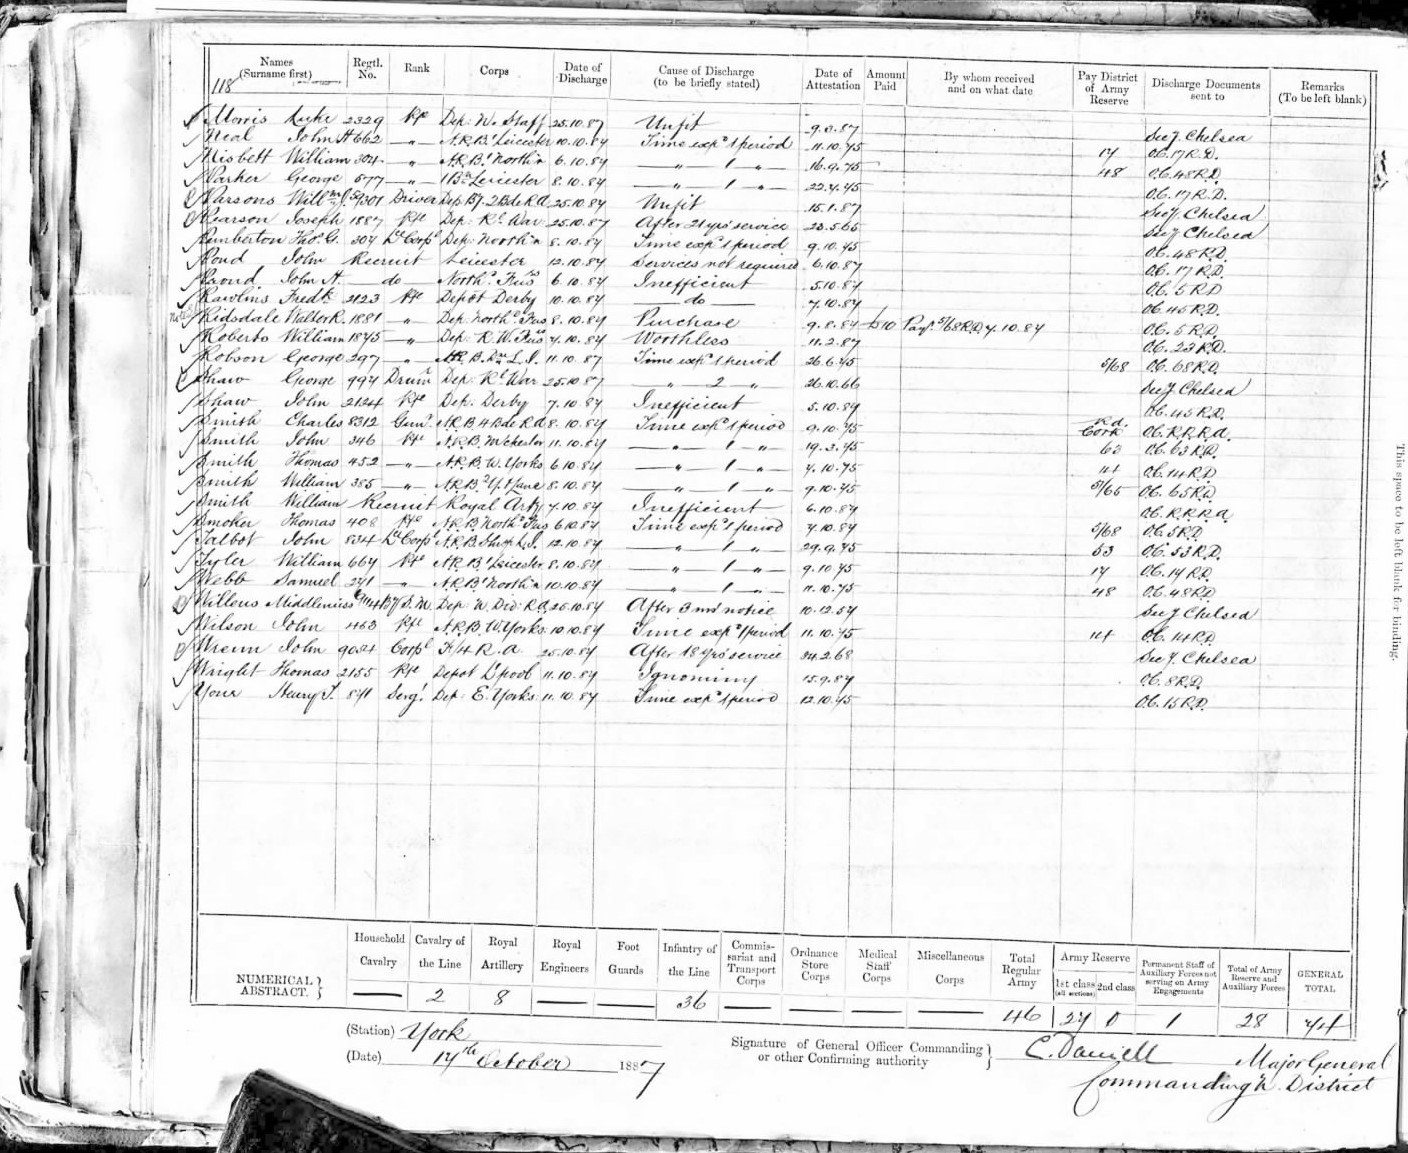 Names (Surname first) Regtl. No. Rank Corps Date of Discharge Cause of Discharge (to be briefly stated) Date of Attestation Amount Paid By whom received and on what date Pay District of Army Reserve Discharge Documents sent to Remarks (To be left blank)
118
Morris Luke 2329 Pte Dep: W. Staff 25.10.87 Unfit 9.3.87 Secy Chelsea
Neal John H 662 " A.R.B. Leicester 10.10.87 Time expd 1 period 11.10.75 17 O.C. 17 R.D.
Nisbett William 304 " A.R.B. North'n 6.10.87 " 1 " 16.9.75 48 O.C. 48 R.D.
Parker George 577 " 1 Bn Leicester 8.10.87 " 1 " 22.4.75 O.C. 17 R.D.
Parsons Willm J. 301 Driver Dep: By. 2 Bde R.A. 25.10.87 Unfit 15.1.87 Secy Chelsea
Pearson Joseph 1887 Pte Dep: Rl War 25.10.87 After 21 yrs' service 23.5.66 Secy Chelsea
Pemberton Thos. G. 307 Lce Corpl Dep: North'n 8.10.87 Time expd 1 period 9.10.75 O.C. 48 R.D.
Pond John Recruit Leicester 12.10.87 Services not required 6.10.87 O.C. 17 R.D.
John A. do Northd Fus 6.10.87 Inefficient 5.10.87 O.C. 5 R.D.
Rawlins Fredk 2123 Pte Depot Derby 10.10.87 do 7.10.87 O.C. 45 R.D.
Ridsdale Walter R. 1881 " Dep: Northd Fus 8.10.87 Purchase 9.8.87 £10 Paymr 5/68 R.D. 7.10.87 O.C. 5 R.D.
Roberts William 1875 " Dep: R.W. Fus 7.10.87 Worthless 11.2.87 O.C. 23 R.D.
Robson George 297 " A.R.B. Dm L.I. 11.10.87 Time expd 1 period 26.6.75 5/68 O.C. 68 R.D.
Shaw George 997 Drumr Dep: Rl War 25.10.87 " 2 " 26.10.66 Secy Chelsea
Shaw John 2124 Pte Dep: Derby 7.10.87 Inefficient 5.10.87 O.C. 45 R.D.
Smith Charles 8312 Gunr A.R.B. 4 Bde R.A. 8.10.87 Time expd 1 period 9.10.75 R.A. Cork O.C. R.R.R.A.
Smith John 346 Pte A.R.B. M'chester 11.10.87 " 1 " 19.3.75 63 O.C. 63 R.D.
Smith Thomas 452 " A.R.B. W. Yorks 6.10.87 " 1 " 7.10.75 14 O.C. 14 R.D.
Smith William 385 " A.R.B. 2 Y. & Lanc 8.10.87 " 1 " 9.10.75 O.C. 65 R.D.
Smith William Recruit Royal Arty 7.10.87 Inefficient 6.10.87 O.C. R.R.R.A.
Smoker Thomas 408 Pte A.R.B. Northd Fus 6.10.87 Time expd 1 period 7.10.87 5/68 O.C. 5 R.D.
Talbot John 834 Lce Corpl A.R.B. Shrop L.I. 12.10.87 " 1 " 29.9.75 53 O.C. 53 R.D.
Tyler William 667 Pte A.R.B. Leicester 8.10.87 " 1 " 9.10.75 17 O.C. 17 R.D.
Webb Samuel 271 " A.R.B. North'n 10.10.87 " 1 " 11.10.75 48 O.C. 48 R.D.
Middlemiss By S.M. Dep: W. Div: R.A. 25.10.87 After 3 ms' notice 10.12.57 Secy Chelsea
Wilson John 463 Pte A.R.B. W. Yorks 10.10.87 Time expd 1 period 11.10.75 14 O.C. 14 R.D.
Wrenn John 9084 Corpl F/4 R.A. 25.10.87 After 18 yrs' service 24.2.68 Secy. Chelsea
Wright Thomas 2155 Pte Depot L'pool 11.10.87 Ignominy 15.9.87 O.C. 8 R.D.
Your Henry T. 871 Sergt Dep: E. Yorks: 11.10.87 Time expd 1 period 12.10.75 O.C. 15 R.D.
This space to be left blank for binding.
NUMERICAL ABSTRACT. Household Cavalry Cavalry of the Line Royal Artillery Royal Engineers Foot Guards Infantry of the Line Commissariat and Transport Corps Ordnance Store Corps Medical Staff Corps Miscellaneous Corps Total Regular Army Army Reserve 1st class (all sections) 2nd class Permanent Staff of Auxiliary Forces not serving on Army Engagements Total of Army Reserve and Auxiliary Forces GENERAL TOTAL
— 2 8 — — 36 — — — — 46 27 0 1 28 74
(Station) York
(Date) 17th October 1887
Signature of General Officer Commanding or other Confirming authority } C. Daniell Major General
Commanding N. District